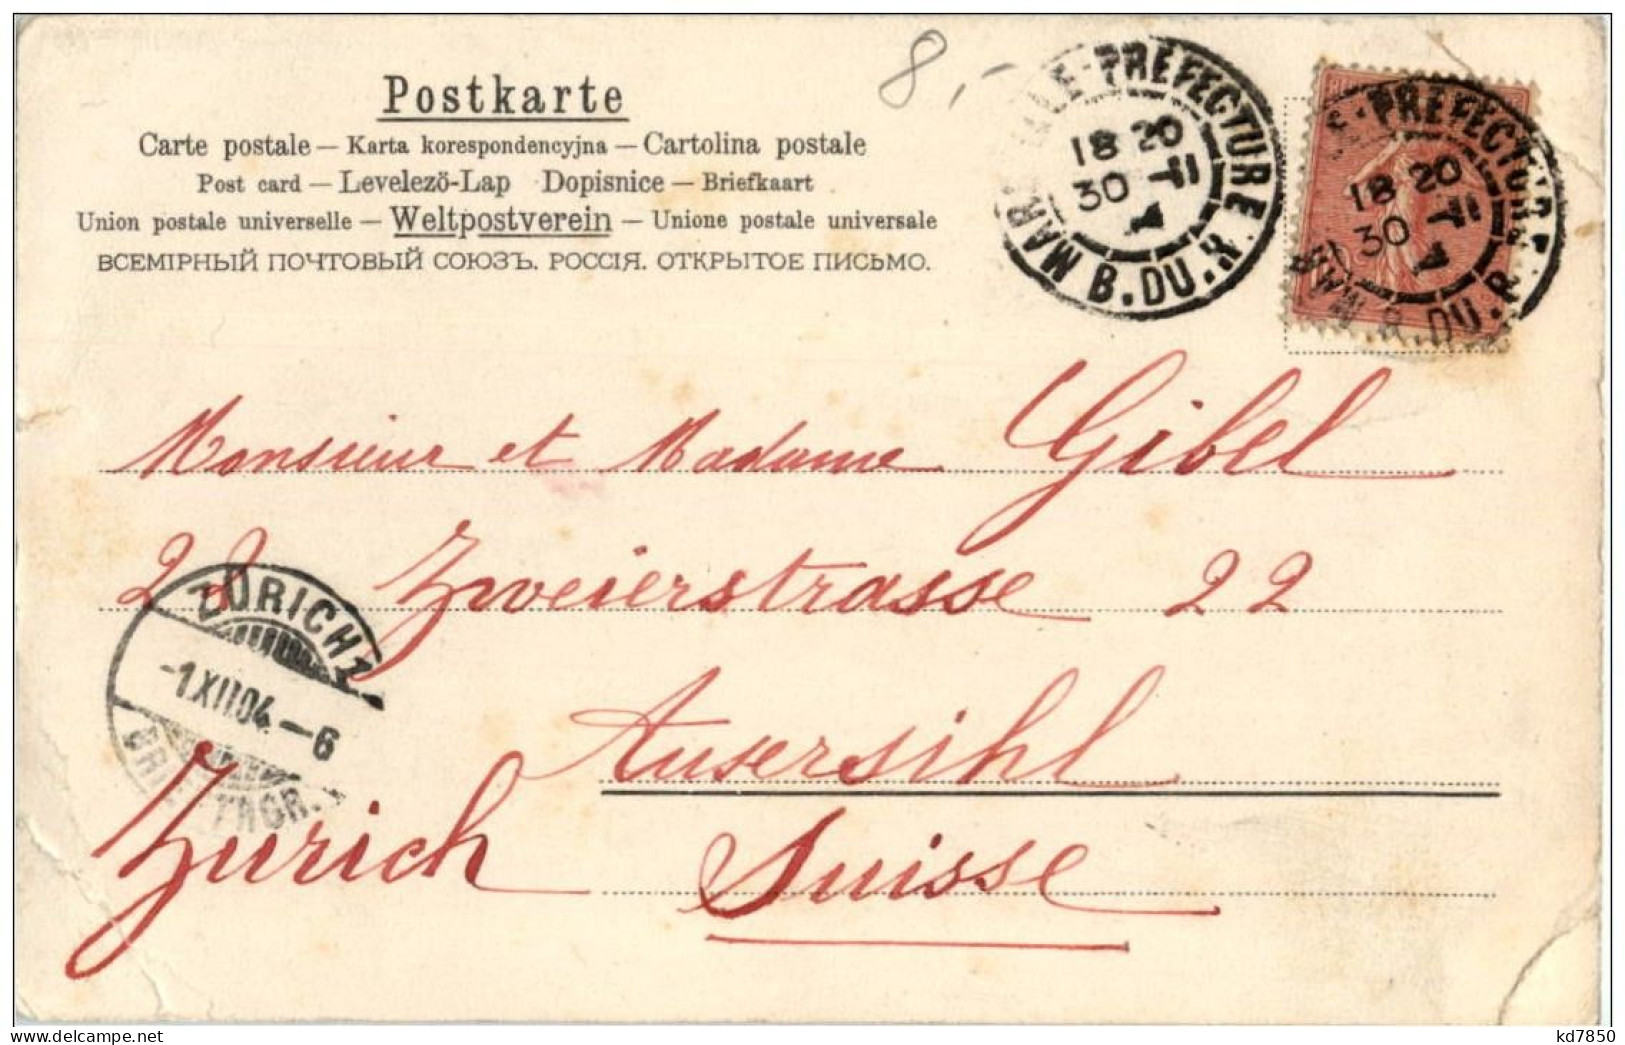 8,-
Postkarte
Carte postale — Karta korespondencyjna — Cartolina postale
Post card — Levelezö-Lap Dopisnice — Briefkaart
Union postale universelle — Weltpostverein — Unione postale universale
ВСЕМІРНЫЙ ПОЧТОВЫЙ СОЮЗЪ. РОССІЯ. ОТКРЫТОЕ ПИСЬМО.
PREFECTURE
18 20
30
MAR B. DU. R.
PREFECTURE
18 20
30
MAR R. DU. R
Monsieur et Madame Gibel
22 Zweierstrasse 22
ZÜRICH 1
-1.XII.04.-6
Aussersihl
Zurich Suisse
delcampe.net
kd7850